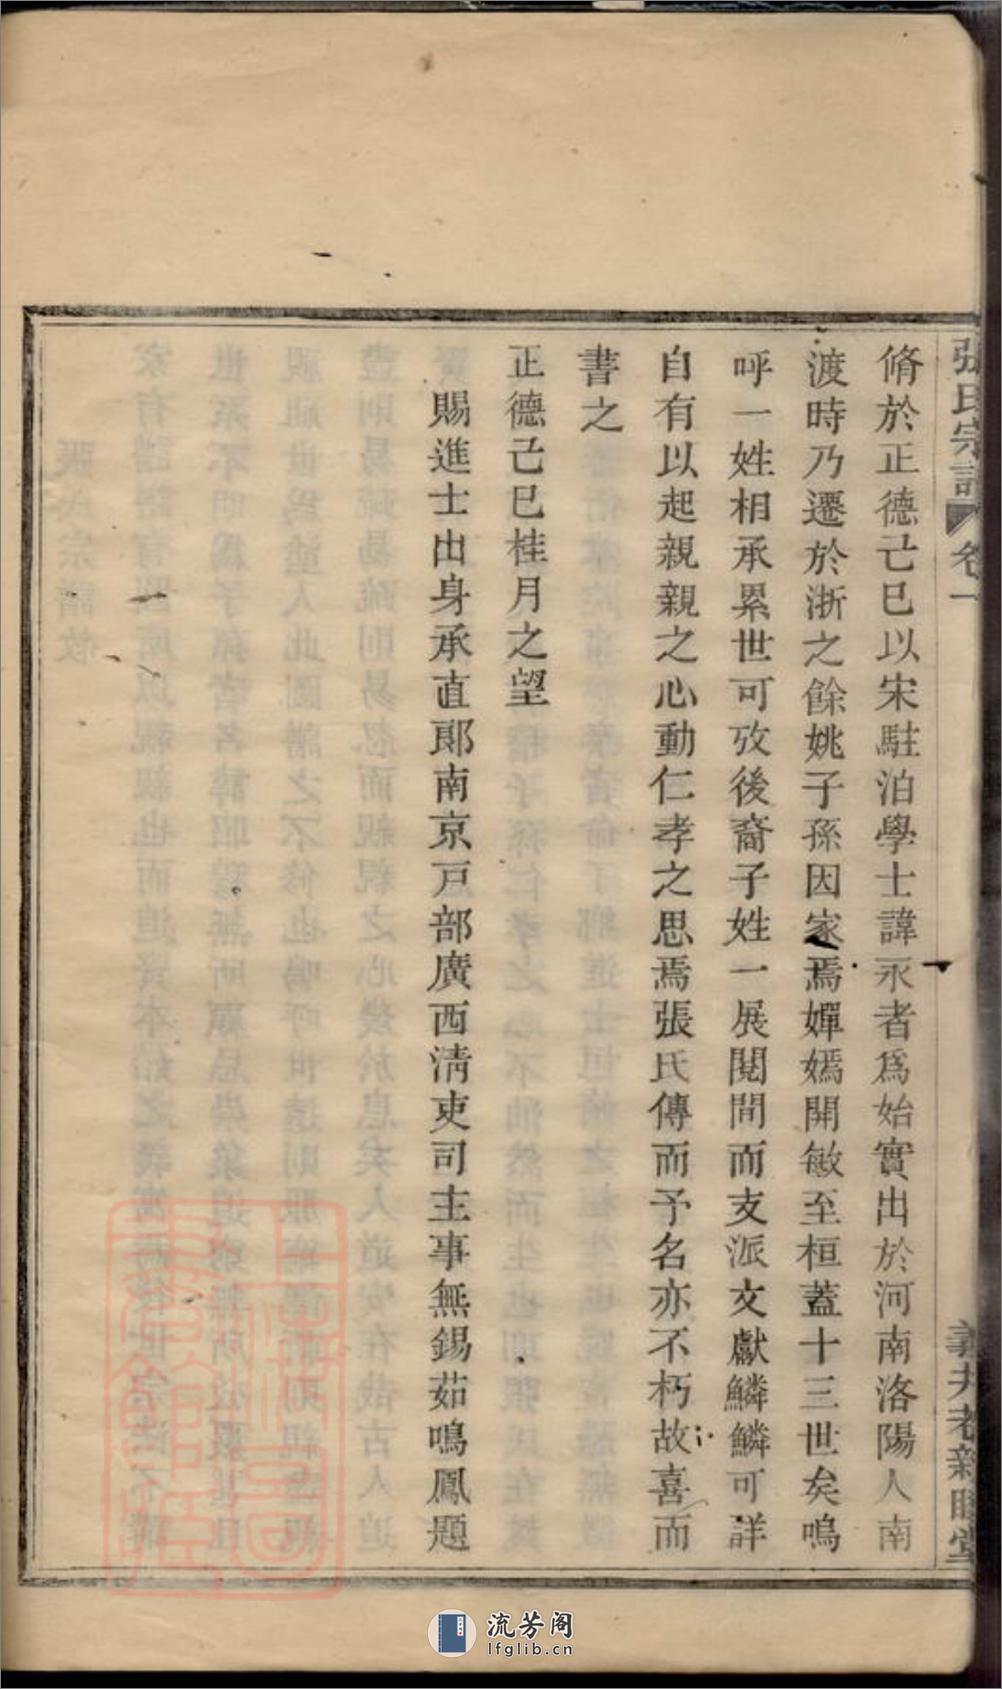 張氏宗譜 卷一 義井老新睦堂
脩於正德己巳以宋駐泊學士諱永者爲始實出於河南洛陽人南
渡時乃遷於浙之餘姚子孫因家焉嬋嫣開敏至桓蓋十三世矣嗚
呼一姓相承累世可攷後裔子姓一展閱間而支派文獻鱗鱗可詳
自有以起親親之心動仁孝之思焉張氏傳而予名亦不朽故喜而
書之
正德己巳桂月之望
賜進士出身承直郞南京戸部廣西淸吏司主事無錫茹鳴鳳題
流芳阁
lfglib.cn